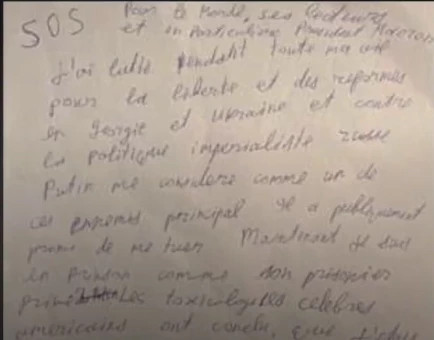 SOS
Pour le Monde, ses lecteurs
et en particulier President Macron
J'ai lutté pendant toute ma vie
pour la liberte et des reformes
en Georgie et Ukraine et contre
la politique imperialiste russe
Putin me considere comme un de
ces ennemis principal Il a publiquement
promi de me tuer Maintenant je suis
en prison comme son prisonier
Les toxicologistes celebres
americains ont conclu, que j'etais